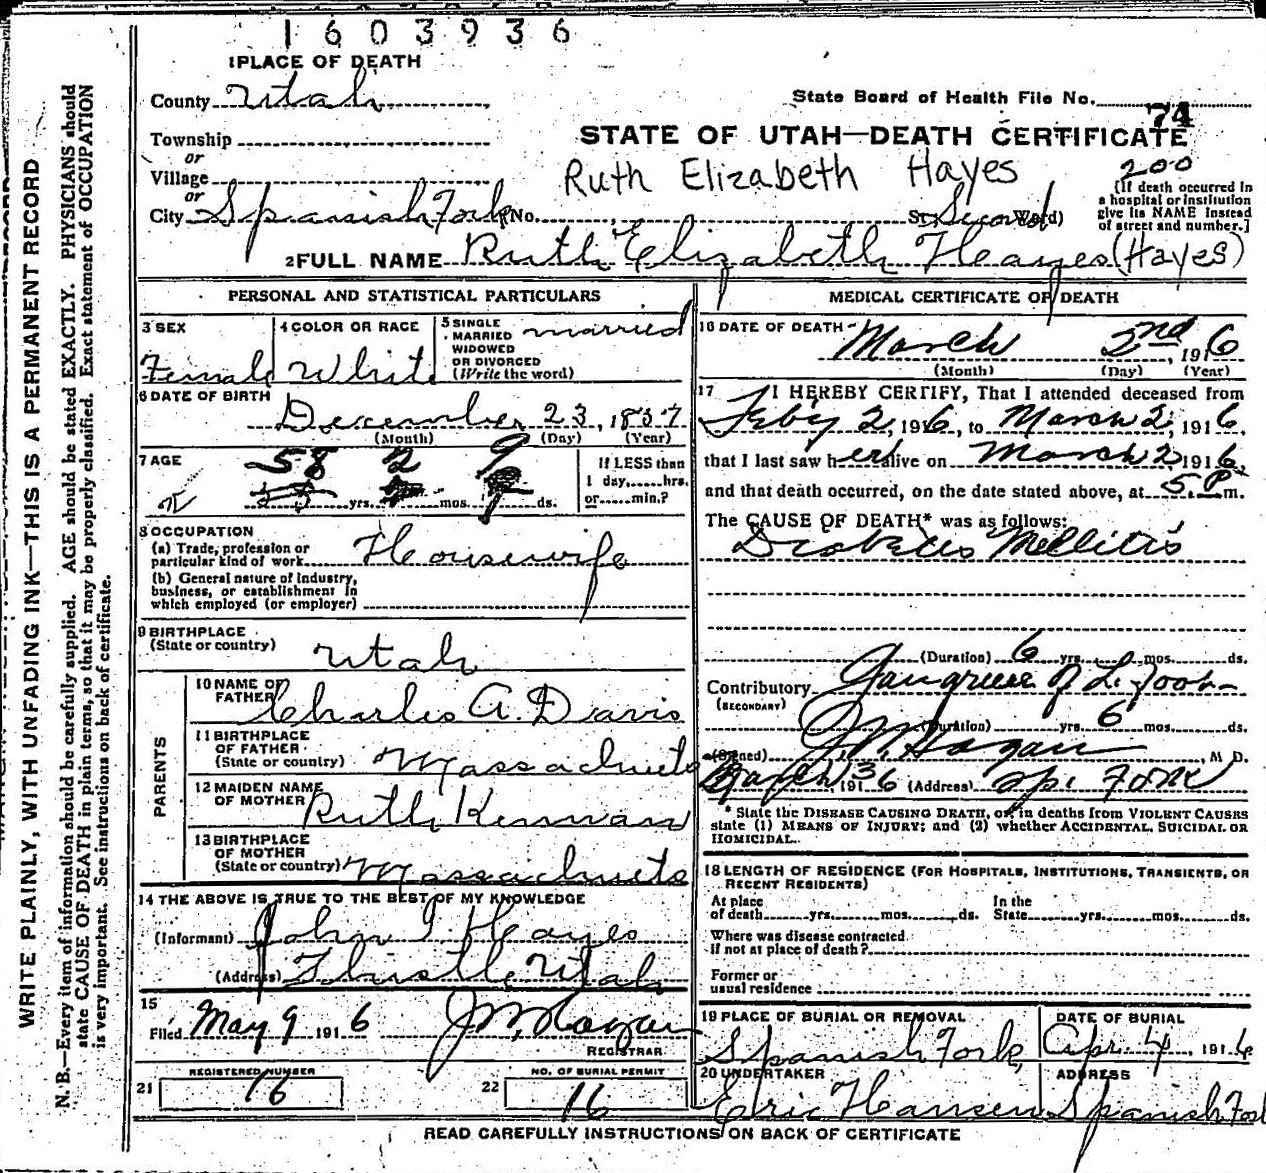 1603936
1 PLACE OF DEATH
County Utah
State Board of Health File No. 74
Township
STATE OF UTAH—DEATH CERTIFICATE
or
Village
Ruth Elizabeth Hayes
200
or
City Spanish Fork No. St. Second Ward)
[If death occurred in
a hospital or institution
give its NAME instead
of street and number.]
2 FULL NAME Ruth Elizabeth Heayes (Hayes)
PERSONAL AND STATISTICAL PARTICULARS
3 SEX
Female
4 COLOR OR RACE
White
5 SINGLE
MARRIED
WIDOWED
OR DIVORCED
(Write the word)
married
6 DATE OF BIRTH
December 23, 1837
(Month) (Day) (Year)
7 AGE
58 2 9
yrs. mos. ds.
If LESS than
1 day......hrs.
or......min.?
8 OCCUPATION
(a) Trade, profession or
particular kind of work Housewife
(b) General nature of Industry,
business, or establishment in
which employed (or employer)
9 BIRTHPLACE
(State or country)
Utah
PARENTS
10 NAME OF
FATHER
Charles A. Davis
11 BIRTHPLACE
OF FATHER
(State or country)
Massachusets
12 MAIDEN NAME
OF MOTHER
Ruth
13 BIRTHPLACE
OF MOTHER
(State or country)
Massachusets
14 THE ABOVE IS TRUE TO THE BEST OF MY KNOWLEDGE
(Informant) John I. Hayes
(Address) Thistle Utah
15
Filed May 9 1916 J. W. Hagan
REGISTRAR
21
REGISTERED NUMBER
16
22
NO. OF BURIAL PERMIT
16
MEDICAL CERTIFICATE OF DEATH
16 DATE OF DEATH
March 2nd, 1916
(Month) (Day) (Year)
17 I HEREBY CERTIFY, That I attended deceased from
Feby 2, 1916, to March 2, 1916,
that I last saw her alive on March 2 1916,
and that death occurred, on the date stated above, at 5 P.m.
The CAUSE OF DEATH* was as follows:
Diabetes Mellitis
(Duration) 6 yrs. mos. ds.
Contributory Gangrene of L. foot
(SECONDARY)
(Duration) yrs. 6 mos. ds.
(Signed) J. W. Hagan, M D.
March 3 1916 (Address) Sp. Fork
* State the DISEASE CAUSING DEATH, or, in deaths from VIOLENT CAUSES
state (1) MEANS OF INJURY; and (2) whether ACCIDENTAL, SUICIDAL OR
HOMICIDAL.
18 LENGTH OF RESIDENCE (FOR HOSPITALS, INSTITUTIONS, TRANSIENTS, OR
RECENT RESIDENTS)
At place
of death yrs. mos. ds.
In the
State yrs. mos. ds.
Where was disease contracted
if not at place of death?
Former or
usual residence
19 PLACE OF BURIAL OR REMOVAL
Spanish Fork,
DATE OF BURIAL
Apr. 4, 1916
20 UNDERTAKER
Elric Hansen
ADDRESS
Spanish Fork
READ CAREFULLY INSTRUCTIONS ON BACK OF CERTIFICATE
WRITE PLAINLY, WITH UNFADING INK—THIS IS A PERMANENT RECORD
N. B.—Every item of information should be carefully supplied. AGE should be stated EXACTLY. PHYSICIANS should
state CAUSE OF DEATH in plain terms, so that it may be properly classified. Exact statement of OCCUPATION
is very important. See instructions on back of certificate.